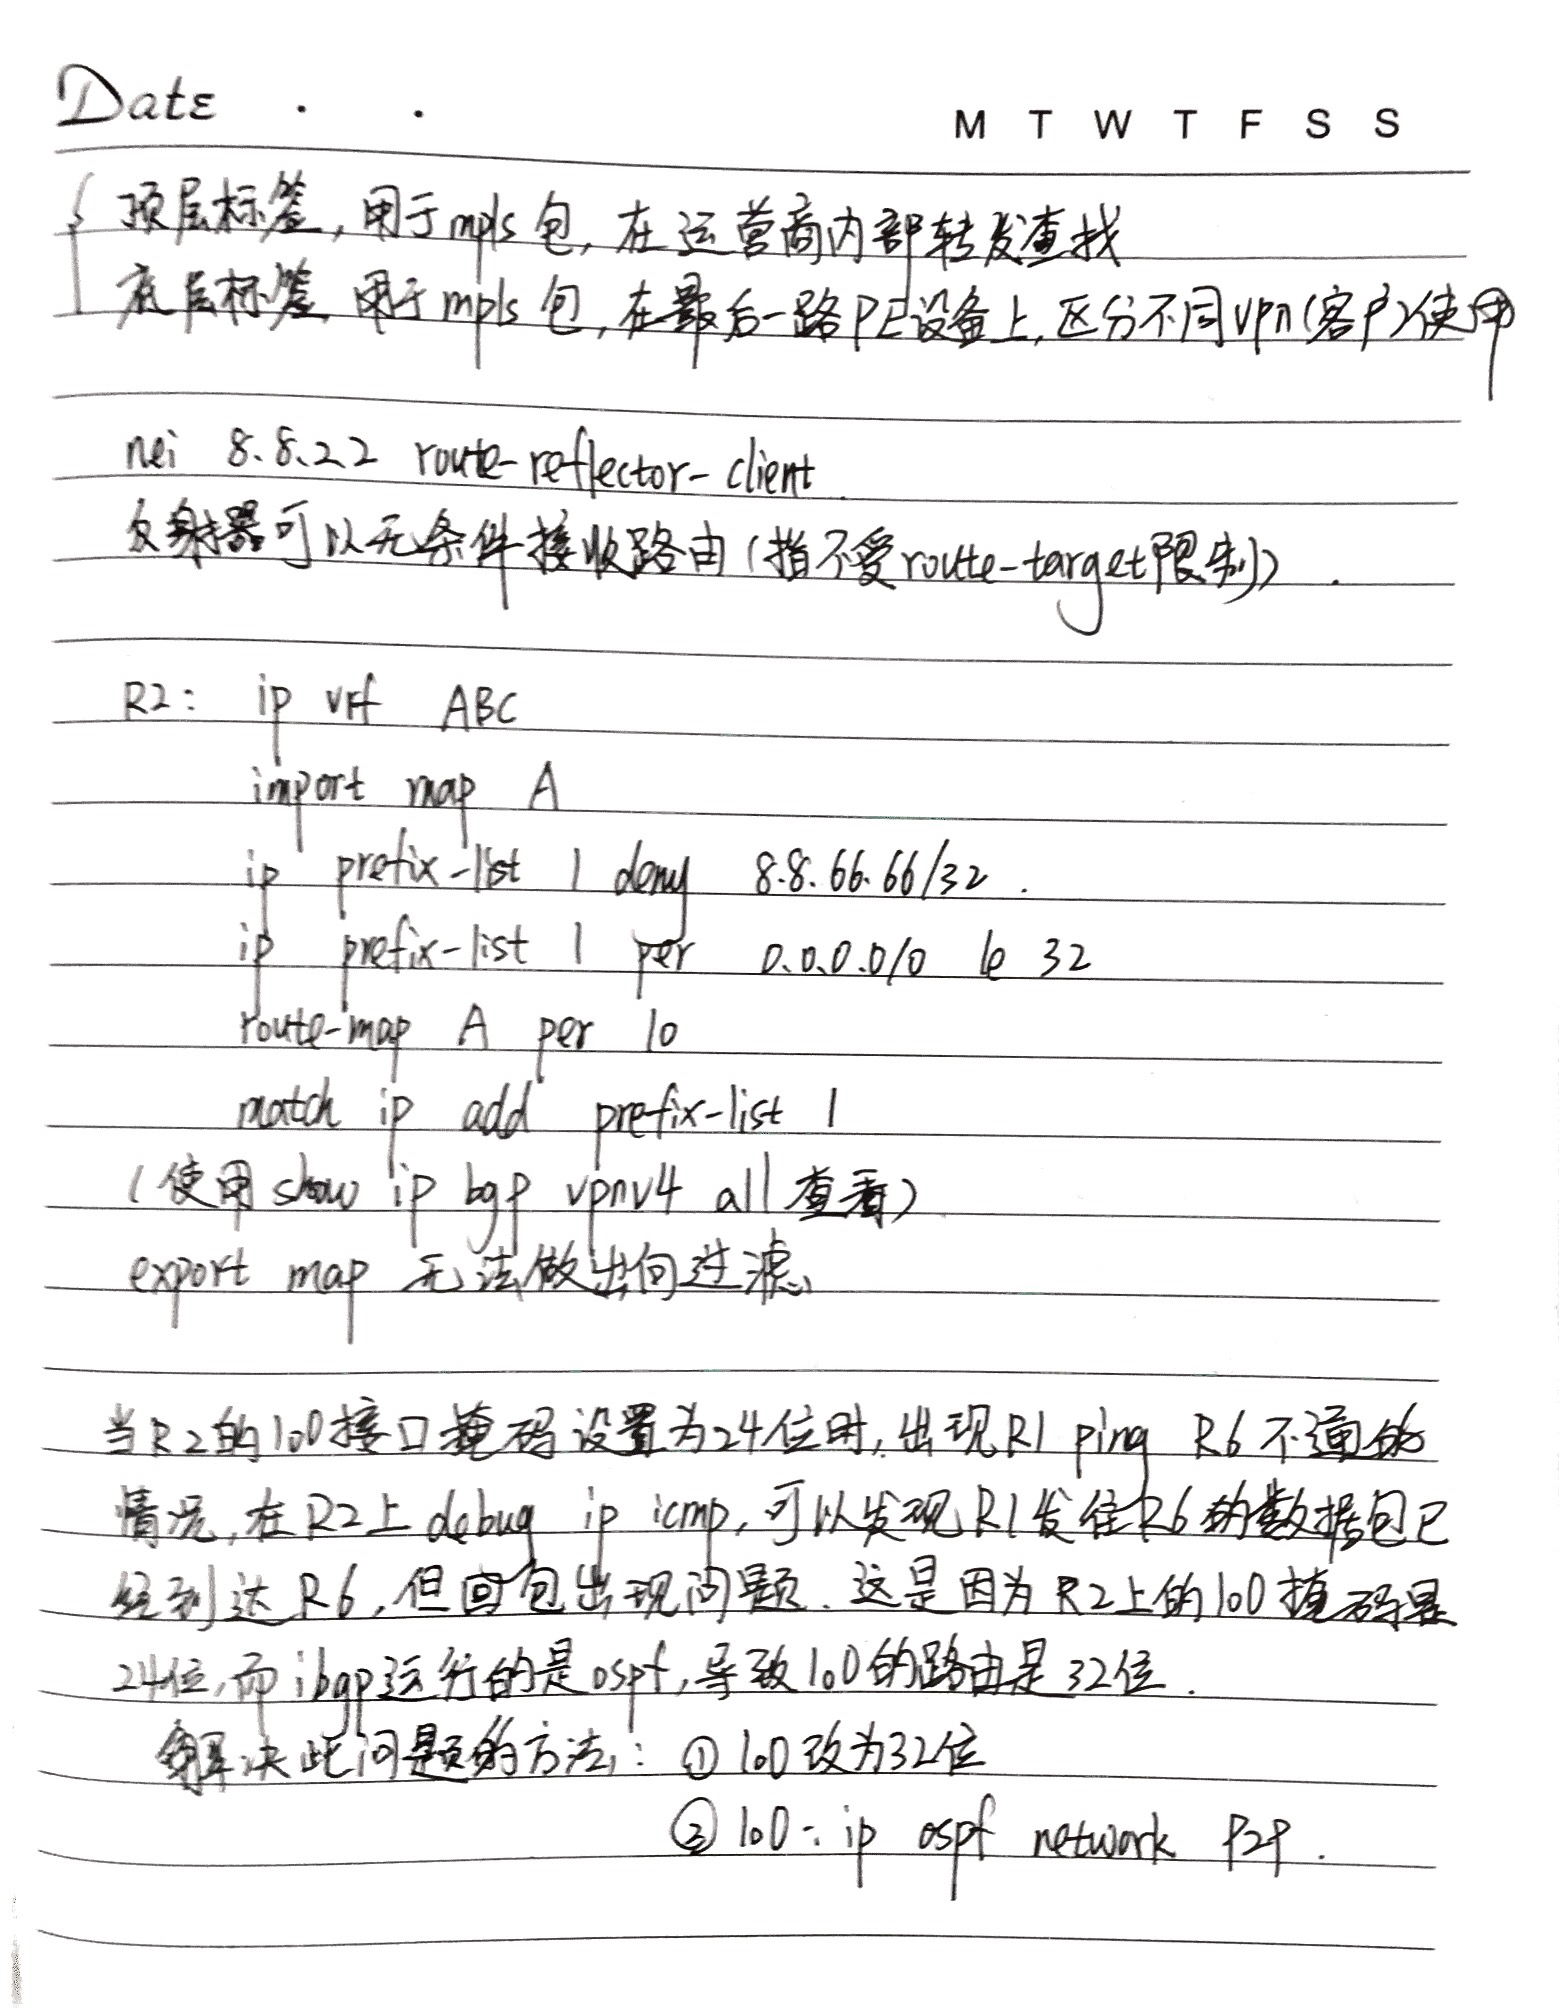 Date . .
M T W T F S S
顶层标签,用于mpls包,在运营商内部转发查找
底层标签,用于mpls包,在最后一路PE设备上,区分不同vpn(客户)使用
nei 8.8.22 route-reflector-client
反射器可以无条件接收路由(指不受route-target限制).
R2: ip vrf ABC
import map A
ip prefix-list 1 deny 8.8.66.66/32.
ip prefix-list 1 per 0.0.0.0/0 le 32
route-map A per 10
match ip add prefix-list 1
(使用show ip bgp vpnv4 all查看)
export map 无法做出向过滤
当R2的lo0接口掩码设置为24位时,出现R1 ping R6不通的
情况,在R2上debug ip icmp,可以发现R1发往R6的数据包已
经到达R6,但回包出现问题.这是因为R2上的lo0掩码是
24位,而ibgp运行的是ospf,导致lo0的路由是32位.
解决此问题的方法: ① lo0改为32位
② lo0: ip ospf network P2P.